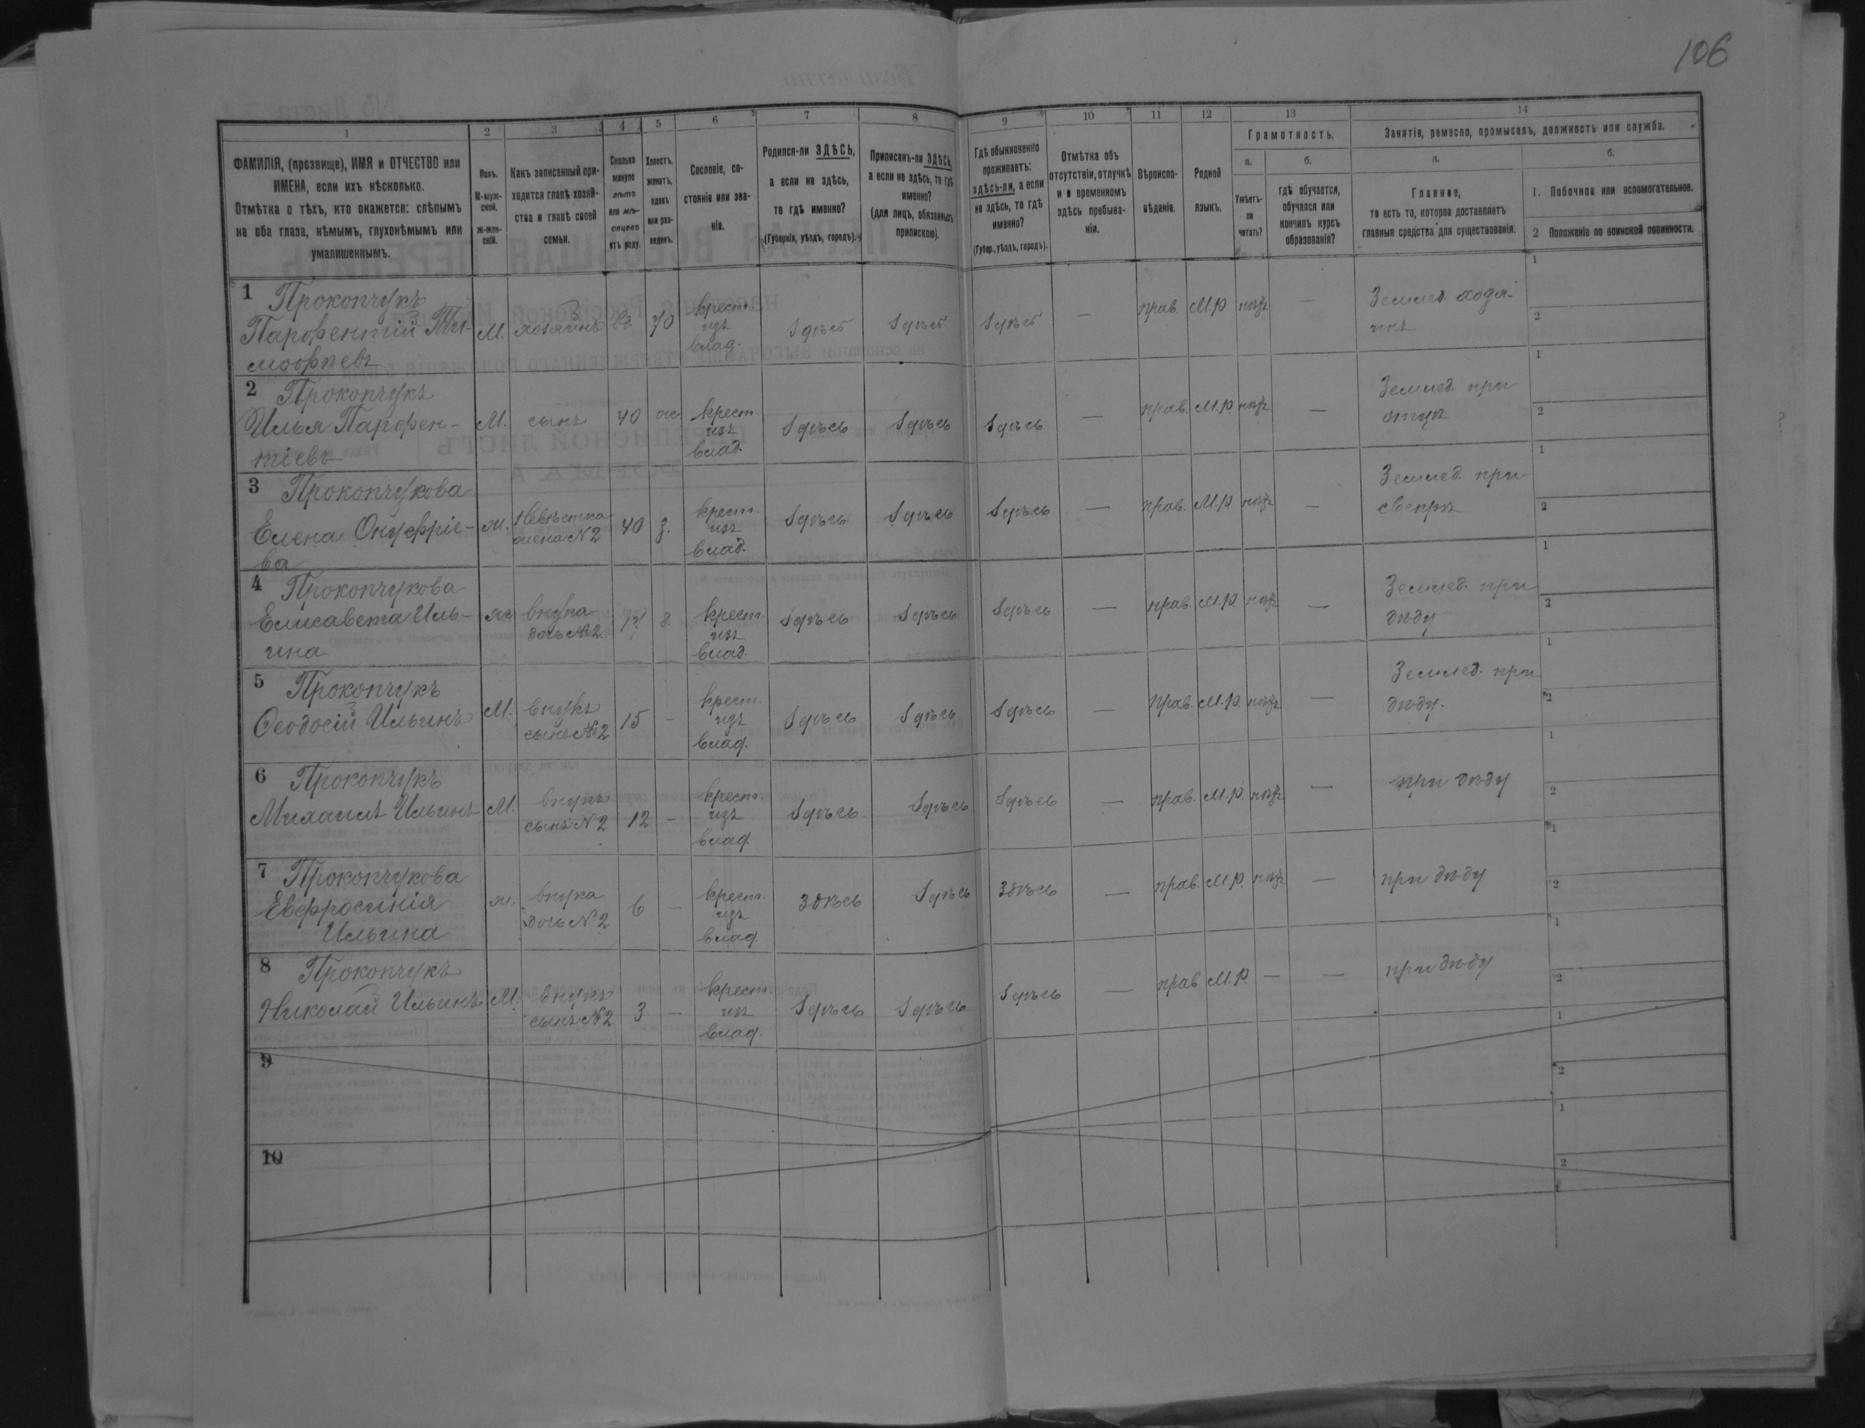 106
1 2 3 4 5 6 7 8 9 10 11 12 13 14
ФАМИЛІЯ, (прозвище), ИМЯ и ОТЧЕСТВО или ИМЕНА, если ихъ нѣсколько.
Отмѣтка о тѣхъ, кто окажется: слѣпымъ на оба глаза, нѣмымъ, глухонѣмымъ или умалишеннымъ.
Полъ.
М-муж-
ской.
ж-жен-
скій.
Какъ записанный при-
ходится главѣ хозяй-
ства и главѣ своей
семьи.
Сколько
минуло
лѣтъ
или мѣ-
сяцевъ
отъ роду.
Холостъ,
женатъ,
вдовъ
или раз-
веденъ.
Сословіе, со-
стояніе или зва-
ніе.
Родился-ли ЗДѢСЬ,
а если не здѣсь,
то гдѣ именно?
(Губернія, уѣздъ, городъ).
Приписанъ-ли ЗДѢСЬ,
а если не здѣсь, то гдѣ
именно?
(для лицъ, обязанныхъ
припискою).
Гдѣ обыкновенно
проживаетъ:
здѣсь-ли, а если
не здѣсь, то гдѣ
именно?
(Губер., уѣздъ, городъ).
Отмѣтка объ
отсутствіи, отлучкѣ
и о временномъ
здѣсь пребыва-
ніи.
Вѣроиспо-
вѣданіе.
Родной
языкъ.
Грамотность.
а. б.
Умѣетъ-
ли
читать?
гдѣ обучается,
обучался или
кончилъ курсъ
образованія?
Занятіе, ремесло, промыселъ, должность или служба.
а. б.
Главное,
то есть то, которое доставляетъ
главныя средства для существованія.
1. Побочное или вспомогательное.
2 Положеніе по воинской повинности.
1 Прокопчукъ
Парфентій Ти-
мофѣевъ
М. хозяинъ 70 крест.
изъ
влад. Здѣсь Здѣсь Здѣсь — прав. М.р нѣтъ — Землед. хозя-
инъ 1 2
2 Прокопчукъ
Илья Парфен-
тіевъ
М. сынъ 40 ж крест.
изъ
влад. Здѣсь Здѣсь Здѣсь — прав. М.р нѣтъ — Землед. при
отцѣ 1 2
3 Прокопчукова
Елена Онуфріе-
ва
ж. Невѣстка
жена №2 40 з. крест.
изъ
влад. Здѣсь Здѣсь Здѣсь — прав. М.р нѣтъ — Землед. при
свекрѣ 1 2
4 Прокопчукова
Елисавета Иль-
ина
ж внука
дочь №2. крест.
изъ
влад. Здѣсь Здѣсь Здѣсь — прав. М.р. нѣтъ — Землед. при
дѣду 1 2
5 Прокопчукъ
Ѳеодосій Ильинъ
М. внукъ
сынъ №2 15 — крест.
изъ
влад. Здѣсь Здѣсь Здѣсь — прав. М.р. нѣтъ — Землед. при
дѣду. 1 2
6 Прокопчукъ
Михаилъ Ильинъ
М. внукъ
сынъ №2 12 — крест.
изъ
влад Здѣсь Здѣсь Здѣсь — прав. М.р. нѣтъ — при дѣду 1 2
7 Прокопчукова
Евфросинія
Ильина
ж. внука
дочь №2 6 — крест.
изъ
влад Здѣсь Здѣсь Здѣсь — прав. М.р. нѣтъ — при дѣду 1 2
8 Прокопчукъ
Николай Ильинъ
М. внукъ
сынъ №2 3 — крест.
изъ
влад. Здѣсь Здѣсь Здѣсь — прав М.р. — — при дѣду 1 2
9 1 2
10 1 2